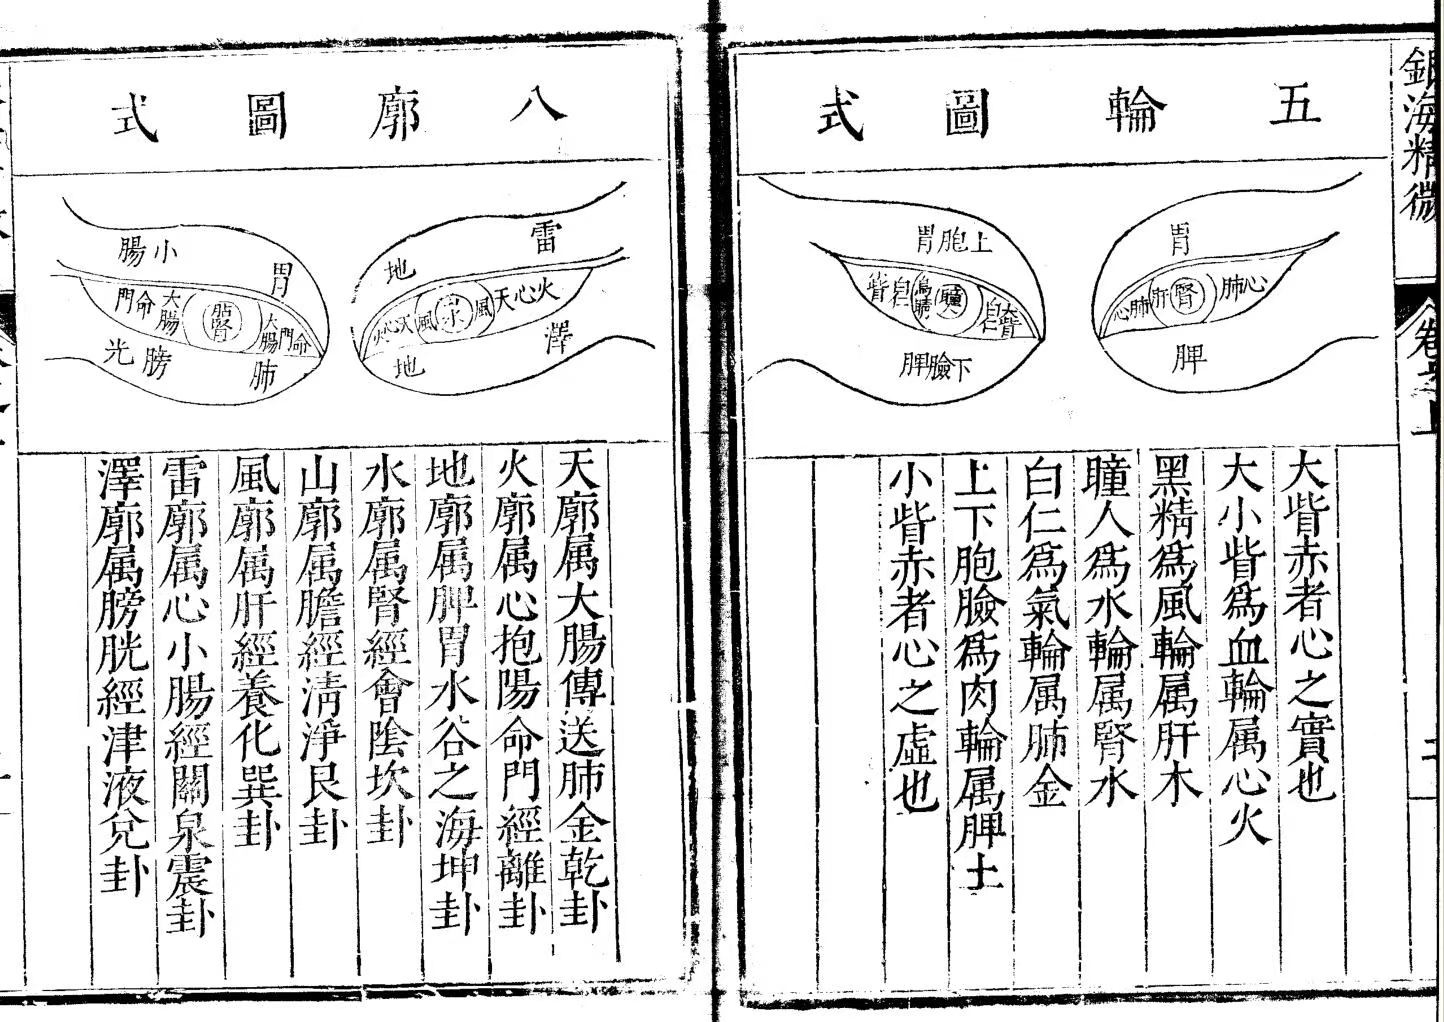 銀海精微
卷之上
五輪圖式
胃
心肺肝腎肺心
脾
上胞胃
大眥白瞳烏睛白眥
下臉脾
大眥赤者心之實也
大小眥爲血輪属心火
黑精爲風輪属肝木
瞳人爲水輪属腎水
白仁爲氣輪属肺金
上下胞臉爲肉輪属脾土
小眥赤者心之虛也
八廓圖式
雷
地
火心天風山水風天心火
澤
地
胃
小腸
命門大腸腎大腸命門
肺
膀光
天廓属大腸傳送肺金乾卦
火廓属心抱陽命門經離卦
地廓属脾胃水谷之海坤卦
水廓属腎經會陰坎卦
山廓属膽經清淨艮卦
風廓属肝經養化巽卦
雷廓属心小腸經關泉震卦
澤廓属膀胱經津液兌卦